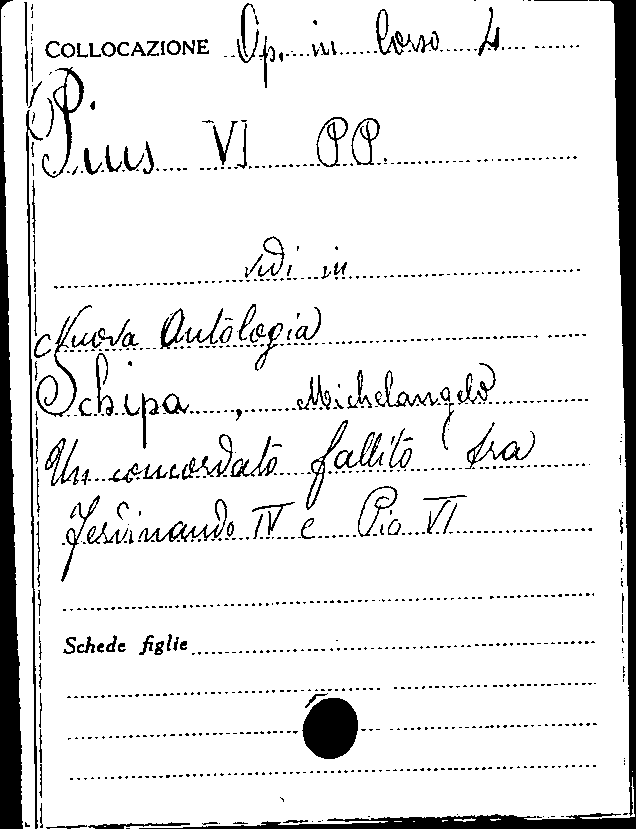 COLLOCAZIONE Op. in Corso 4
Pius VI PP.
vedi in
Nuova Antologia
Schipa, Michelangelo
Un concordato fallito fra
Ferdinando IV e Pio VI
Schede figlie